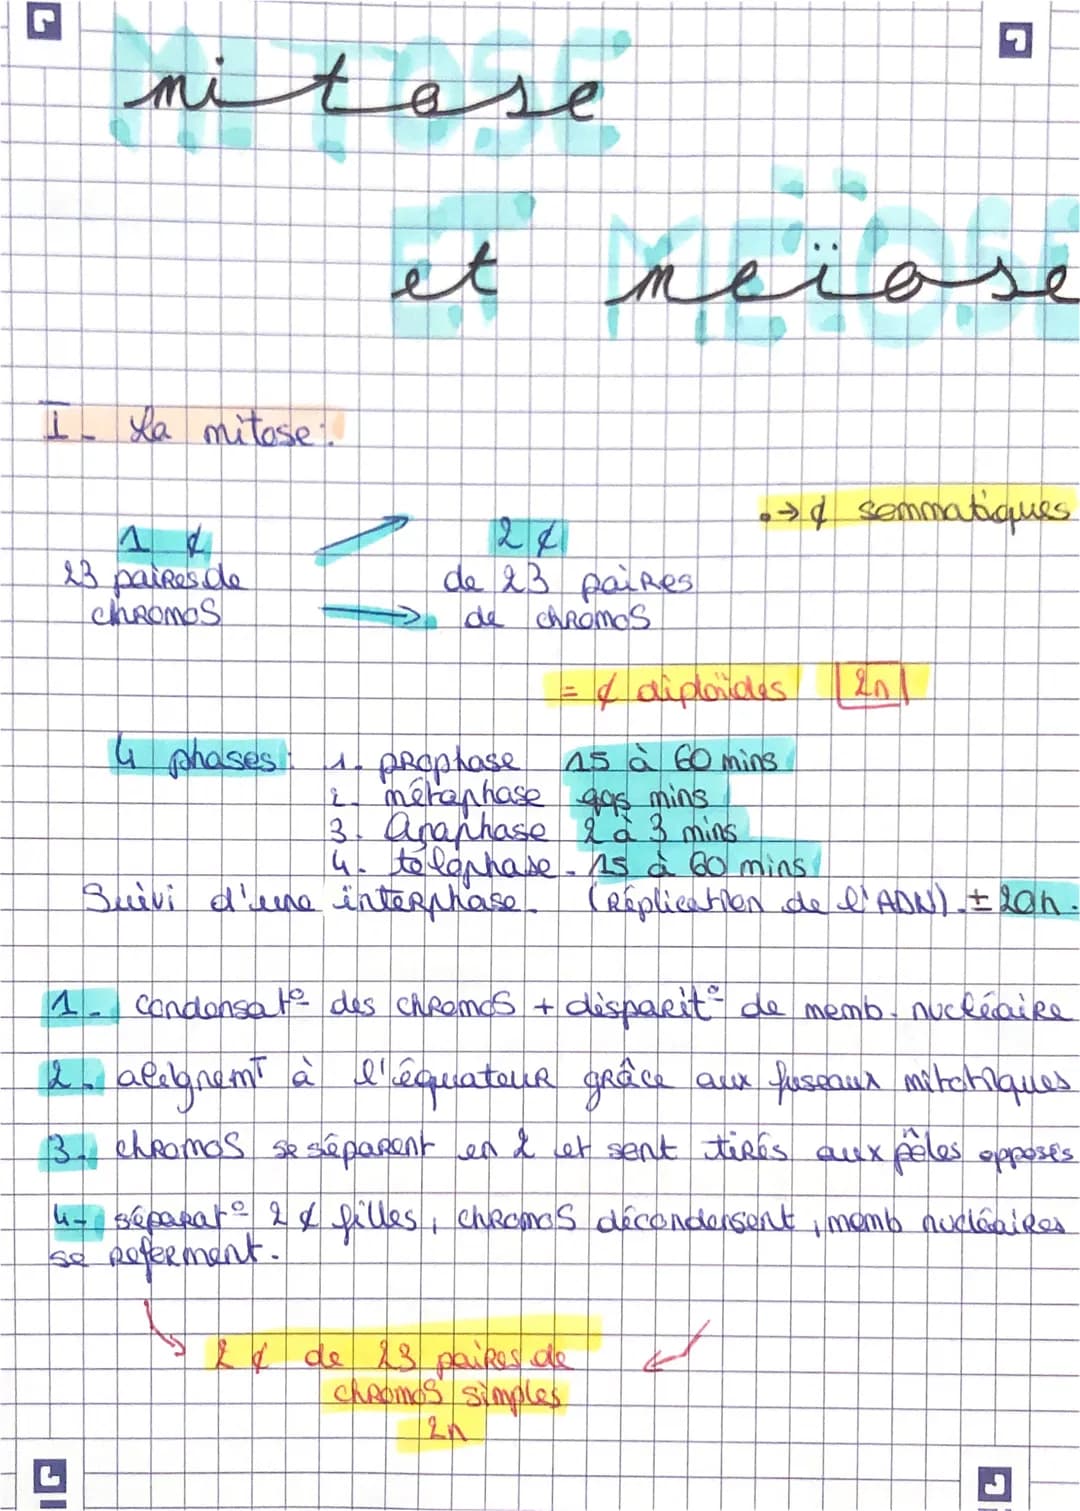 MITOSE
mitose
ET MEÏOSE
et meïose
I- La mitose:
•→ ¢ sommatiques
1 ¢ 2 ¢
23 paires de de 23 paires
chromos → de chromos
= ¢ diploïdes 2n
4 phases: 1. prophase 15 à 60 mins
2. métaphase qqs mins
3. Anaphase 2 à 3 mins
4. télophase - 15 à 60 mins
Suivi d'une interphase. (Réplication de l'ADN). ± 20h.
1- condensat° des chromos + disparit° de memb. nucléaire
2. alignemT à l'équateur grâce aux fuseaux mitotiques
3. chromos se séparent en 2 et sont tirés aux pôles opposés
4- séparat° 2 ¢ filles, chromos décondensent, memb nucléaires
se referment.
2 ¢ de 23 paires de
chromos simples
2n